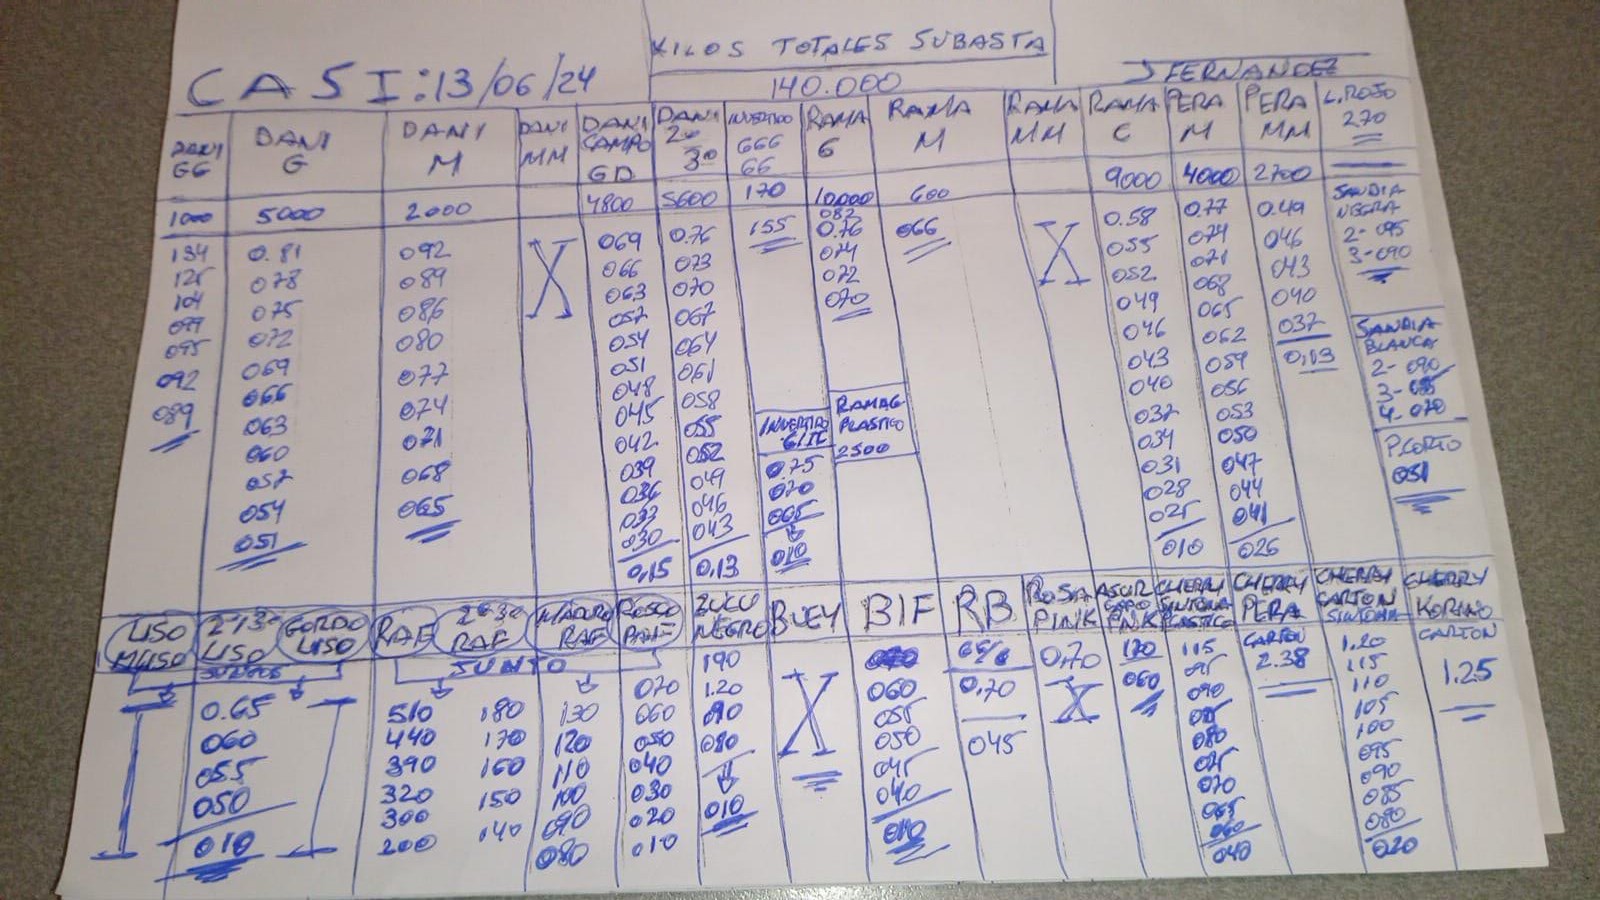 KILOS TOTALES SUBASTA
CASI: 13/06/24
140.000
J FERNANDEZ
DANI GG
1000
134
125
104
099
095
092
089
DANI G
5000
0.81
078
075
072
069
066
063
060
057
054
051
DANI M
2000
092
089
086
080
077
074
071
068
065
DANI MM
X
DANI CAMPO GD
4800
069
066
063
057
054
051
048
045
042
039
036
033
030
0,15
DANI 2ª 3ª
5600
0.76
073
070
067
064
061
058
055
052
049
046
043
0,13
INVERTIDO
666
66
170
155
INVERTIDO
0.75
070
065
010
RAMA G
10.000
082
0.76
074
072
070
RAMA G
PLASTICO
2500
RAMA M
600
066
RAMA MM
X
RAMA C
9000
0.58
055
052
049
046
043
040
037
034
031
028
025
010
PERA M
4000
0.77
074
071
068
065
062
059
056
053
050
047
044
041
026
PERA MM
2700
0.49
046
043
040
037
0,13
L. ROJO
270
SANDIA
NEGRA
2- 095
3- 090
SANDIA
BLANCA
2- 090
3- 085
4- 070
P. CORTO
051
LISO
M LISO
2ª 3ª
LISO
GORDO
LISO
JUNTOS
0.65
060
055
050
010
RAF
2ª 3ª
RAF
MADURO
RAF
ROSCO
RAF
JUNTO
510
440
390
320
300
200
180
170
160
150
140
130
120
110
100
090
080
070
060
050
040
030
020
010
ZUCU
NEGRO
190
1.20
090
080
010
BUEY
X
BIF
060
055
050
045
040
010
RB
66/6
0,70
045
ROSA
PINK
0,70
X
ASUR
CAPO
PNK
170
060
CHERRY
SINTONIA
PLASTICO
115
095
090
085
080
075
070
065
060
040
CHERRY
PERA
CARTON
2.38
CHERRY
CARTON
SINTONIA
1.20
115
110
105
100
095
090
085
080
020
CHERRY
KORINO
CARTON
1.25